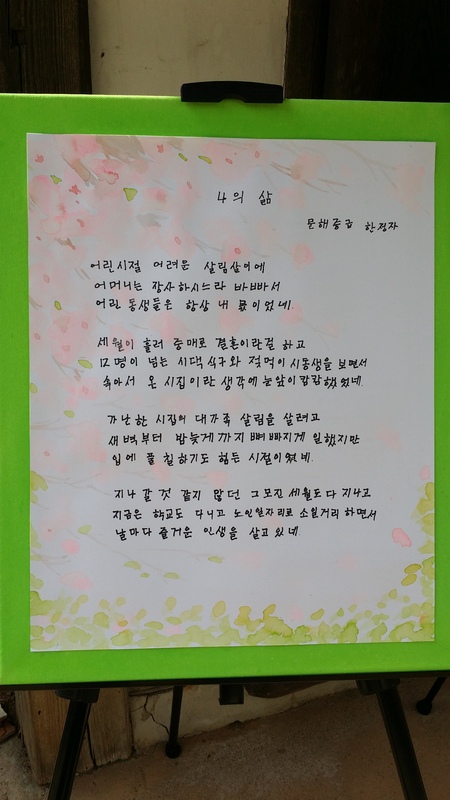 나의 삶
문해중급 한정자
어린시절 어려운 살림살이에
어머니는 장사하시느라 바빠서
어린 동생들은 항상 내 몫이었네.
세월이 흘러 중매로 결혼이란걸 하고
12명이 넘는 시댁식구와 젖먹이 시동생을 보면서
속아서 온 시집이란 생각에 눈앞이 캄캄했었네
가난한 시집이 대가족 살림을 살려고
새벽부터 밤늦게까지 뼈빠지게 일했지만
입에 풀칠하기도 힘든 시절이였네.
지나갈것 같지 않던 그모진세월도 다 지나고
지금은 학교도 다니고 노인일자리로 소일거리 하면서
날마다 즐거운 인생을 살고있네